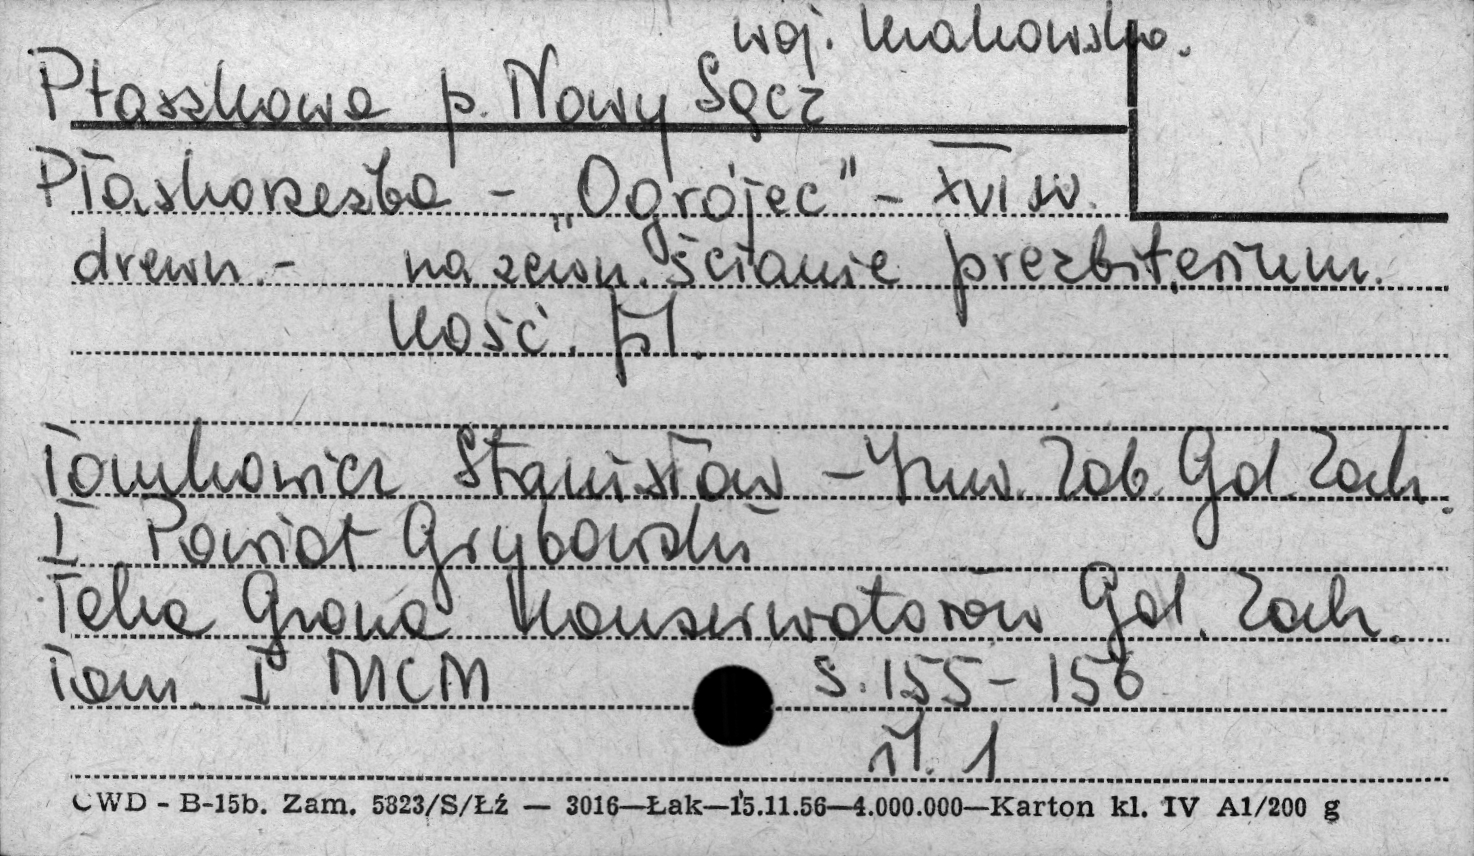 woj. krakowskie.
Ptaszkowa p. Nowy Sącz
Płaskorzeźba - „Ogrójec" - XVI w.
drewn. - na zewn. ścianie prezbiterium.
kość. pł.
Tomkowicz Stanisław - Inw. Zab. Gal. Zach.
I Powiat Grybowski
Teka Grona Konserwatorów Gal. Zach.
Tom. I MCM s. 155-156
il. 1
CWD - B-15b. Zam. 5823/S/Łź — 3016—Łak—15.11.56—4.000.000—Karton kl. IV A1/200 g